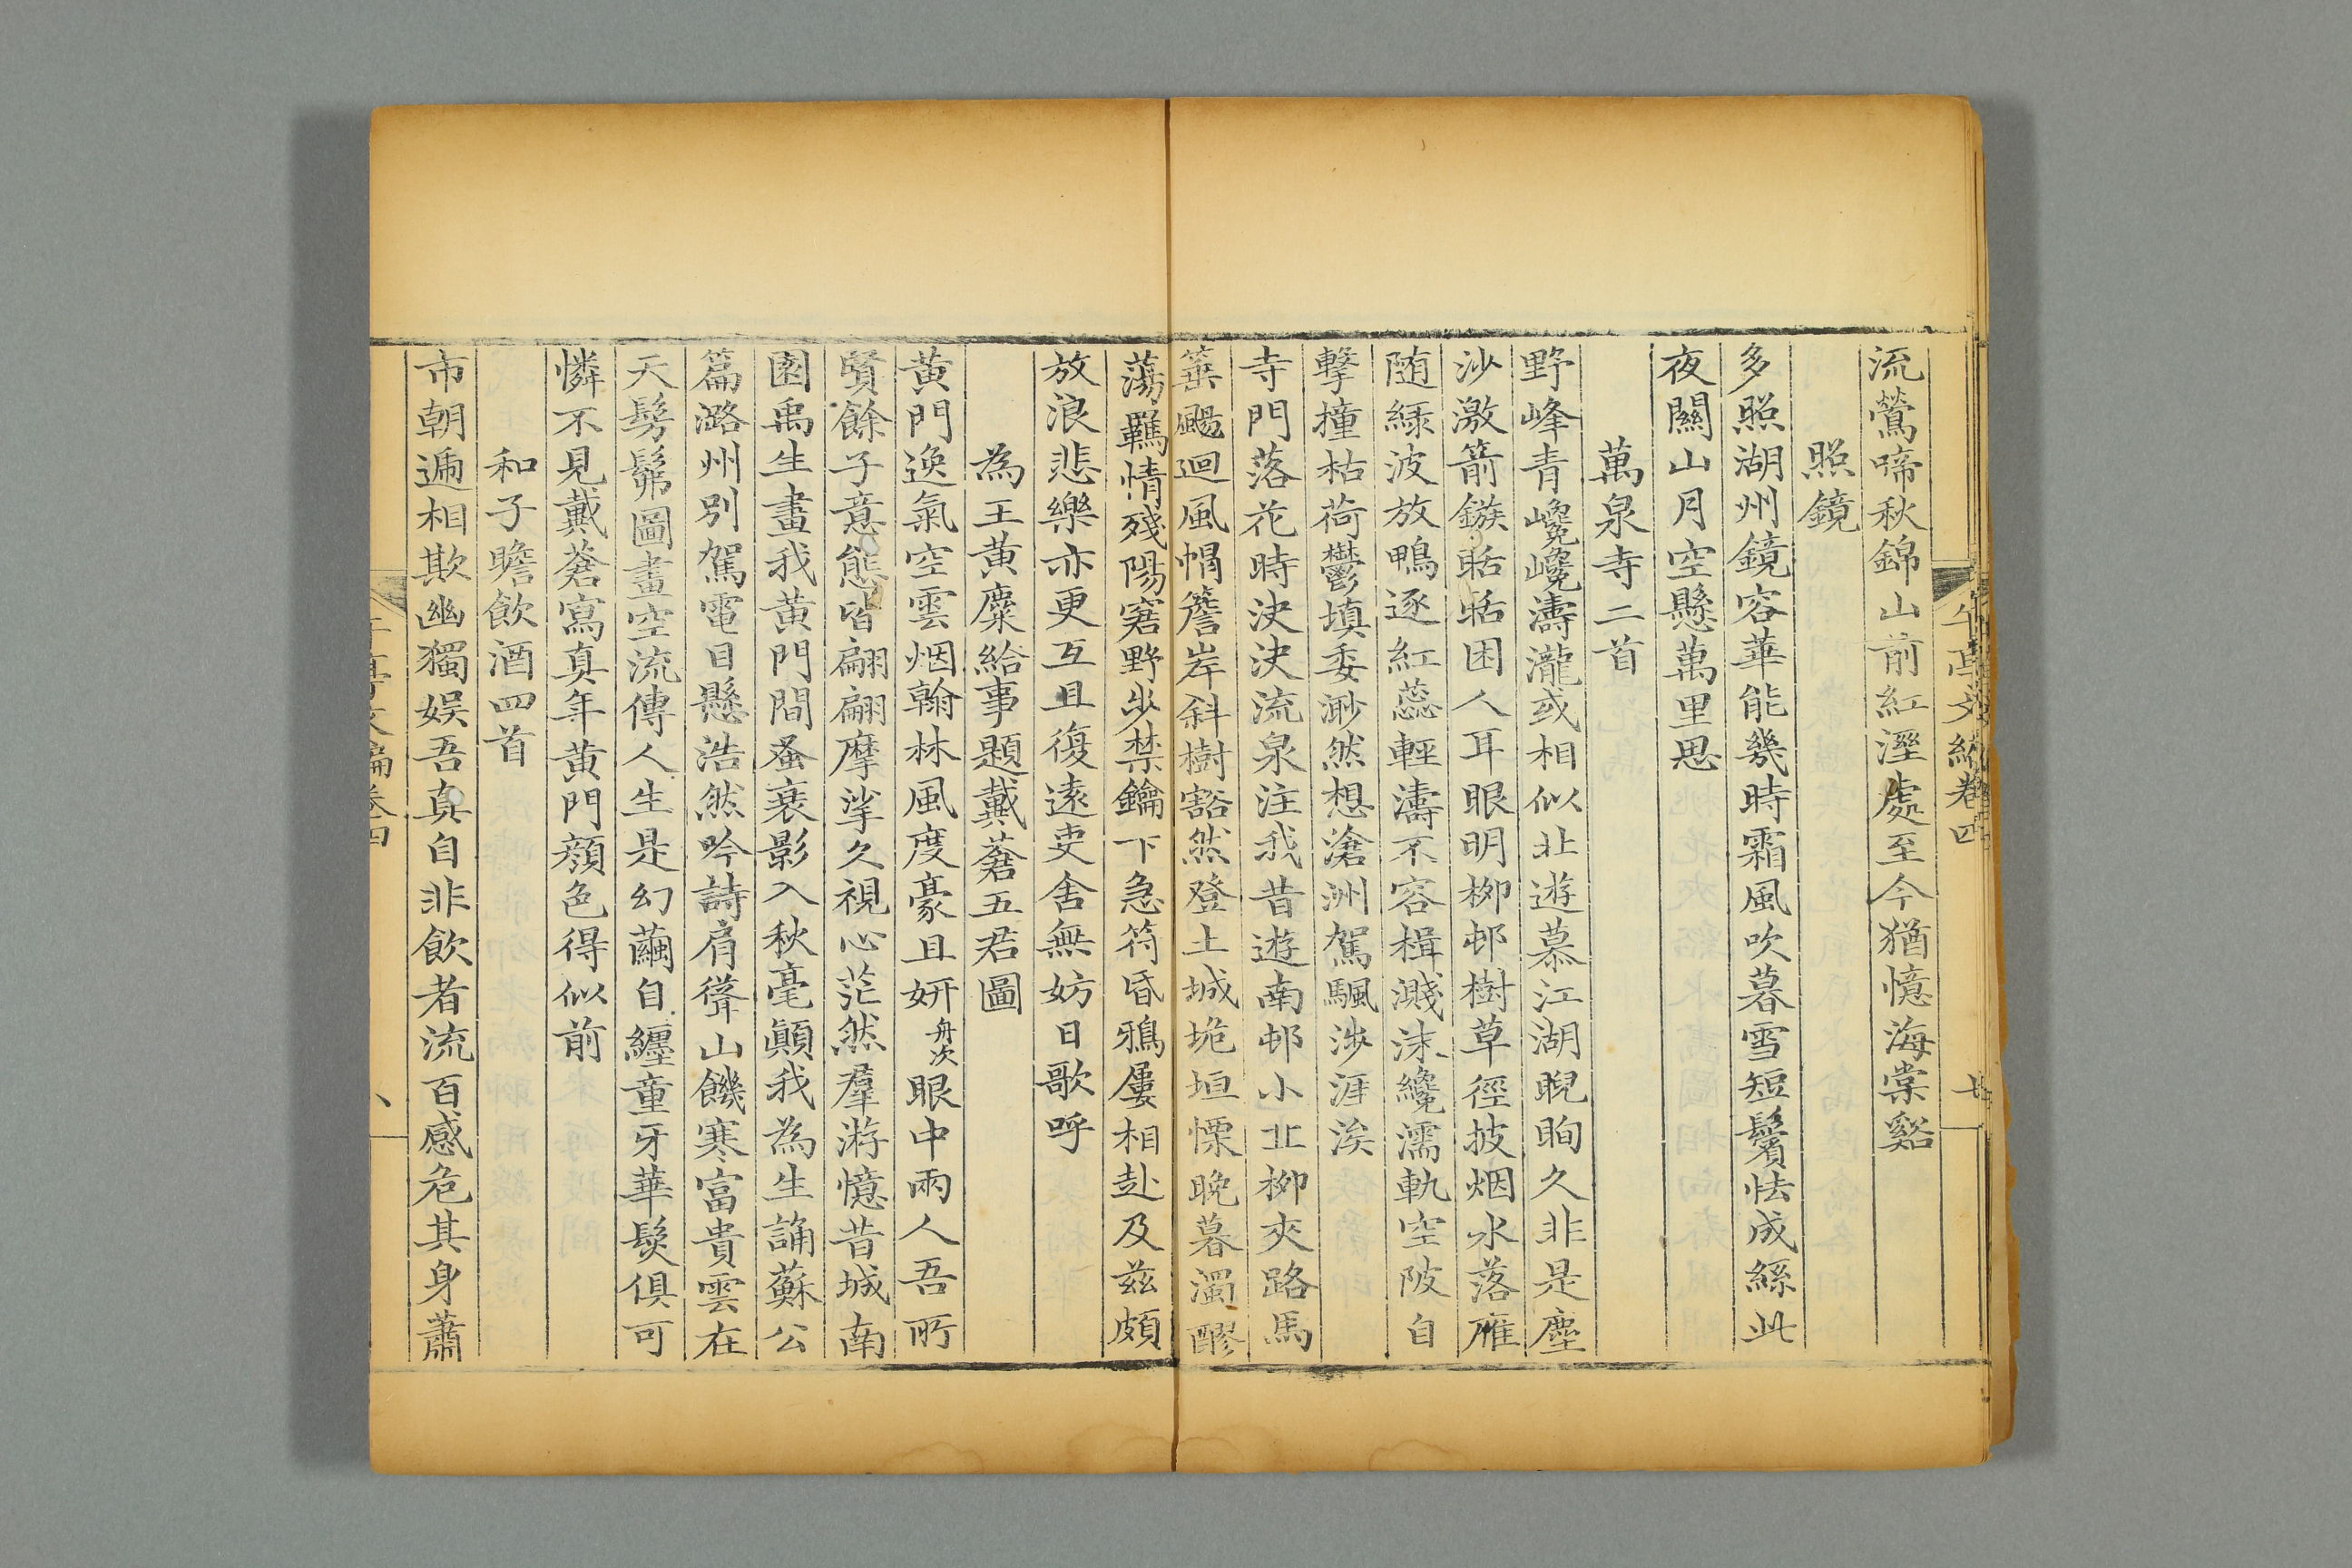 午亭文編卷四
七
流鶯啼秋錦山前紅溼處至今猶憶海棠谿
照鏡
多照湖州鏡容華能幾時霜風吹暮雪短鬢怯成絲此
夜關山月空懸萬里思
萬泉寺二首
野峰青巉巉濤瀧或相似北遊慕江湖睨眴久非是塵
沙激箭鏃聒聒困人耳眼明柳邨樹草徑披烟水落雁
随綠波放鴨逐紅蕊輕濤不容楫濺沫纔濡軌空陂自
擊撞枯荷鬱填委渺然想滄洲駕颿涉涯涘
寺門落花時泱泱流泉注我昔遊南邨小北柳夾路馬
箠颺迴風帽簷岸斜樹豁然登土城垝垣慄晚暮濁醪
蕩羈情殘陽窘野步禁鑰下急符昏鴉屢相赴及茲頗
放浪悲樂亦更互且復遠吏舍無妨日歌呼
為王黄麋給事題戴蒼五君圖
黄門逸氣空雲烟翰林風度豪且妍舟次眼中兩人吾所
賢餘子意態皆翩翩摩挲久視心茫然羣游憶昔城南
園禹生畫我黄門間蚤衰影入秋毫顛我為生誦蘇公
篇潞州別駕電目懸浩然吟詩肩聳山饑寒富貴雲在
天髣髴圖畫空流傳人生是幻繭自纏童牙華髮俱可
憐不見戴蒼寫真年黄門顔色得似前
和子瞻飲酒四首
市朝逓相欺幽獨娱吾真自非飲者流百感危其身蕭
午亭文編卷四
八